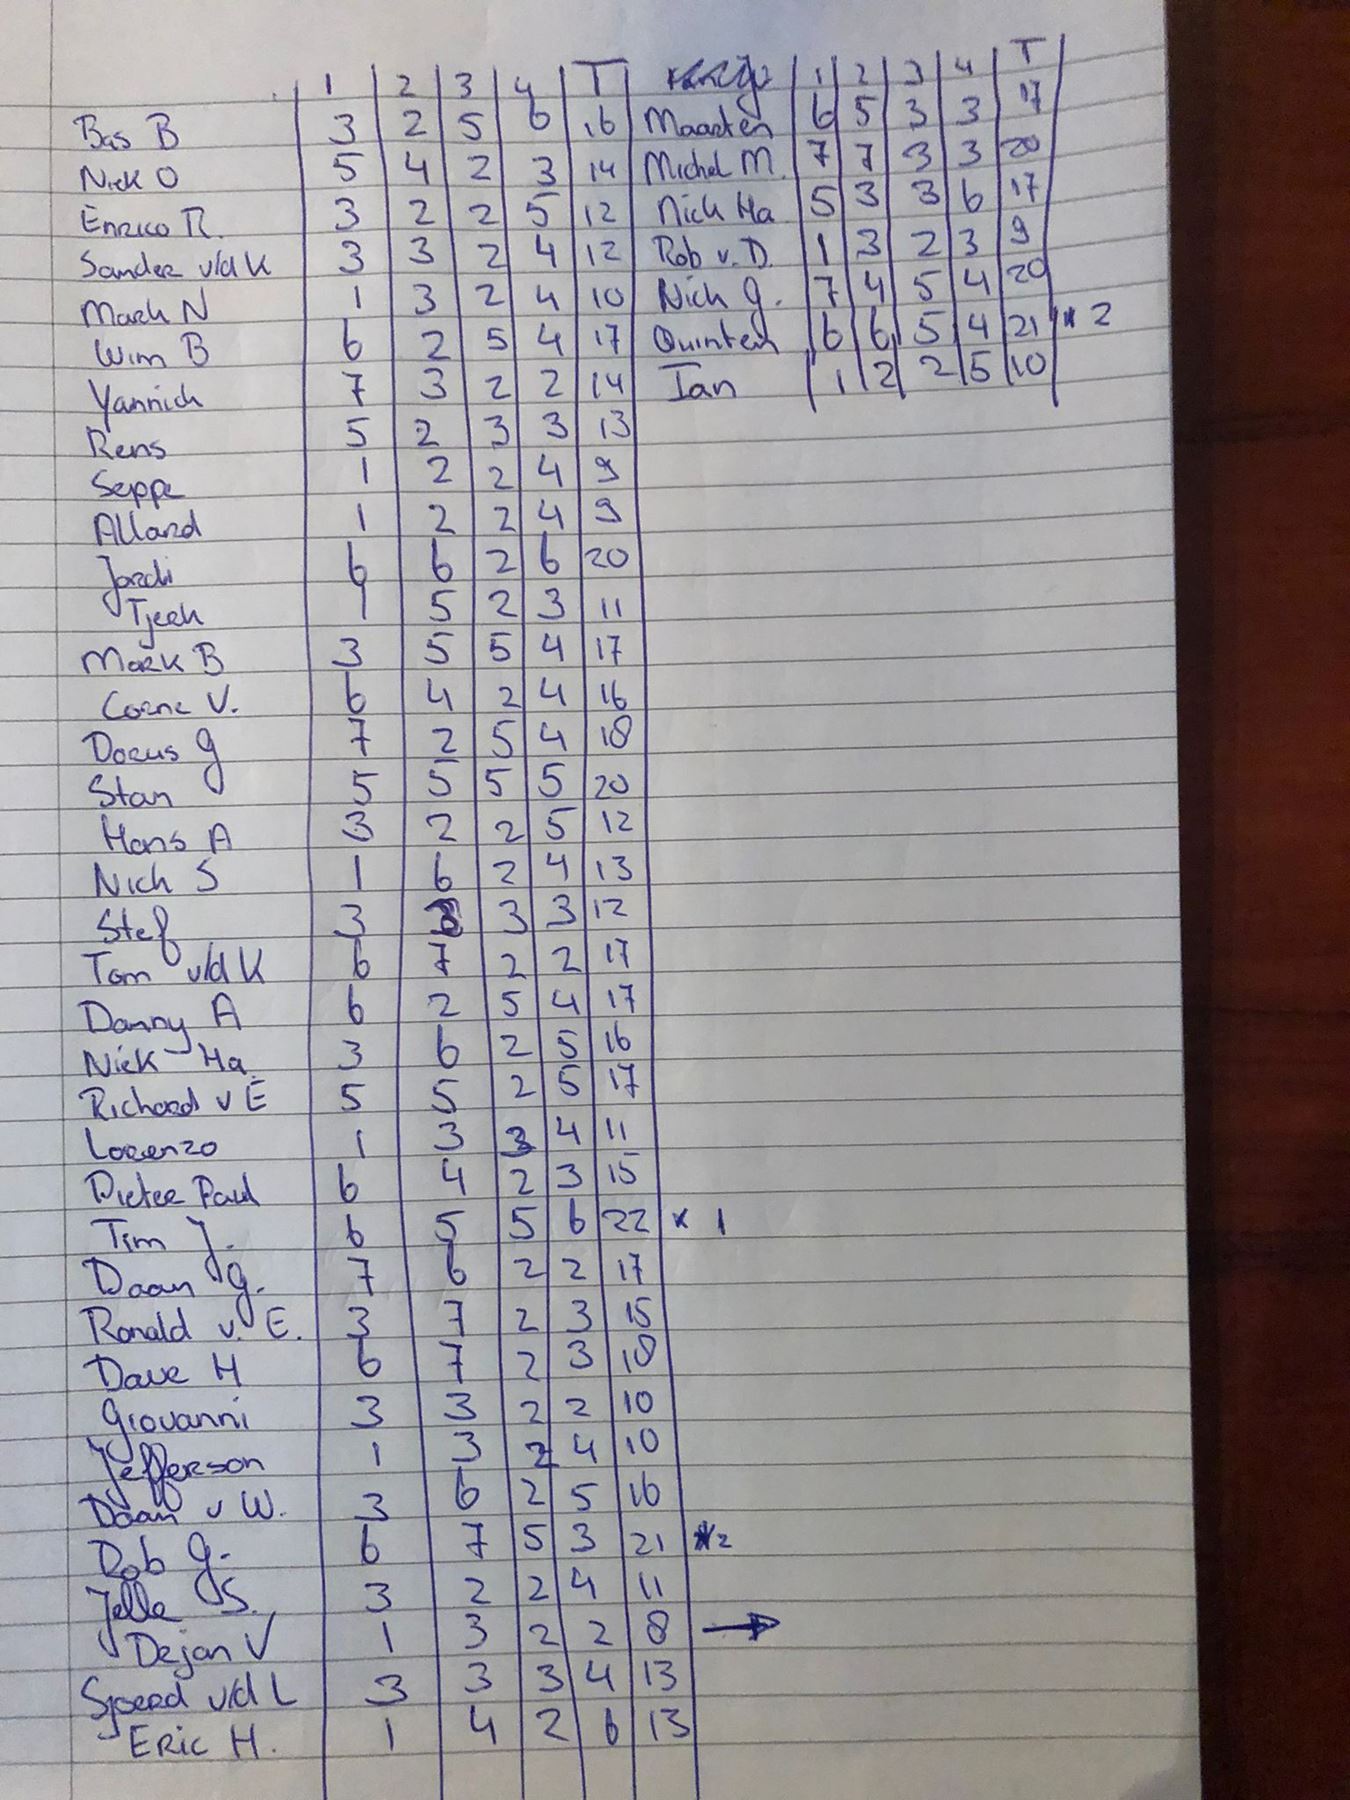 1 2 3 4 T 1 2 3 4 T
Bas B 3 2 5 6 16 Maarten 6 5 3 3 17
Nick O 5 4 2 3 14 Michel M. 7 7 3 3 20
Enrico R. 3 2 2 5 12 Nick Ha 5 3 3 6 17
Sander v/d K 3 3 2 4 12 Rob v. D. 1 3 2 3 9
Mark N 1 3 2 4 10 Nick G. 7 4 5 4 20
Wim B 6 2 5 4 17 Quinten 6 6 5 4 21 * 2
Yannick 7 3 2 2 14 Ian 1 2 2 5 10
Rens 5 2 3 3 13
Seppe 1 2 2 4 9
Allard 1 2 2 4 9
Jordi 6 6 2 6 20
Tjerk 1 5 2 3 11
Mark B 3 5 5 4 17
Corne V. 6 4 2 4 16
Dorus G 7 2 5 4 18
Stan 5 5 5 5 20
Hans A 3 2 2 5 12
Nick S 1 6 2 4 13
Stef 3 3 3 12
Tom v/d K 6 7 2 2 17
Danny A 6 2 5 4 17
Nick Ha. 3 6 2 5 16
Richard v E 5 5 2 5 17
Lorenzo 1 3 3 4 11
Pieter Paul 6 4 2 3 15
Tim J. 6 5 5 6 22 * 1
Daan G. 7 6 2 2 17
Ronald v. E. 3 7 2 3 15
Dave H 6 7 2 3 18
Giovanni 3 3 2 2 10
Jefferson 1 3 2 4 10
Daan v W. 3 6 2 5 16
Rob G. 6 7 5 3 21 *2
Jelle S. 3 2 2 4 11
Dejan V 1 3 2 2 8 →
Sjoerd v/d L 3 3 3 4 13
Eric H. 1 4 2 6 13